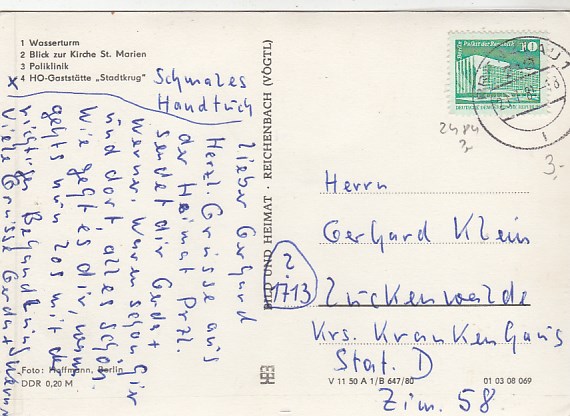 1 Wasserturm
2 Blick zur Kirche St. Marien
3 Poliklinik
4 HO-Gaststätte „Stadtkrug"
x
Schmales
Handtuch
Lieber Gerhard
Herzl. Grüsse aus
der Heimat Przl.
sendet dir Gerda +
Werner. Waren schon hir
und dort, alles schön.
Wie geht es dir, wenn
gehts nun los mit der
richtigen Behandlung
Viele Grüsse Gerda + Werner
Foto: Hoffmann, Berlin
DDR 0,20 M
BILD UND HEIMAT · REICHENBACH (VOGTL)
V 11 50 A 1/B 647/80
01 03 08 069
Berlin, Palast der Republik
10
DEUTSCHE DEMOKRATISCHE REPUBLIK
2484
3,-
3,-
Herrn
Gerhard Klein
?
1713
Luckenwalde
Krs. Krankenhaus
Stat. D
Zim. 58